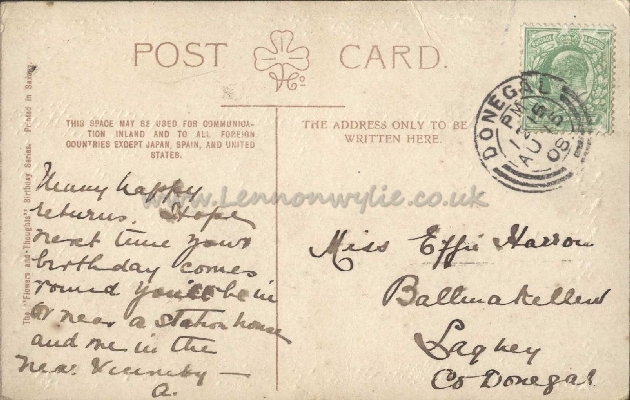 POST CARD.
THIS SPACE MAY BE USED FOR COMMUNICA-
TION INLAND AND TO ALL FOREIGN
COUNTRIES EXCEPT JAPAN, SPAIN, AND UNITED
STATES.
THE ADDRESS ONLY TO BE
WRITTEN HERE.
The "Flowers and Thoughts" Birthday Series. Printed in Saxony.
www.Lennonwylie.co.uk
Many happy
returns. Hope
next time your
birthday comes
round you'll be in
or near a station house
and me in the
near
A.
Miss Effie Harron
Ballinakillew
Laghey
Co Donegal
DONEGAL
PM
AU
08